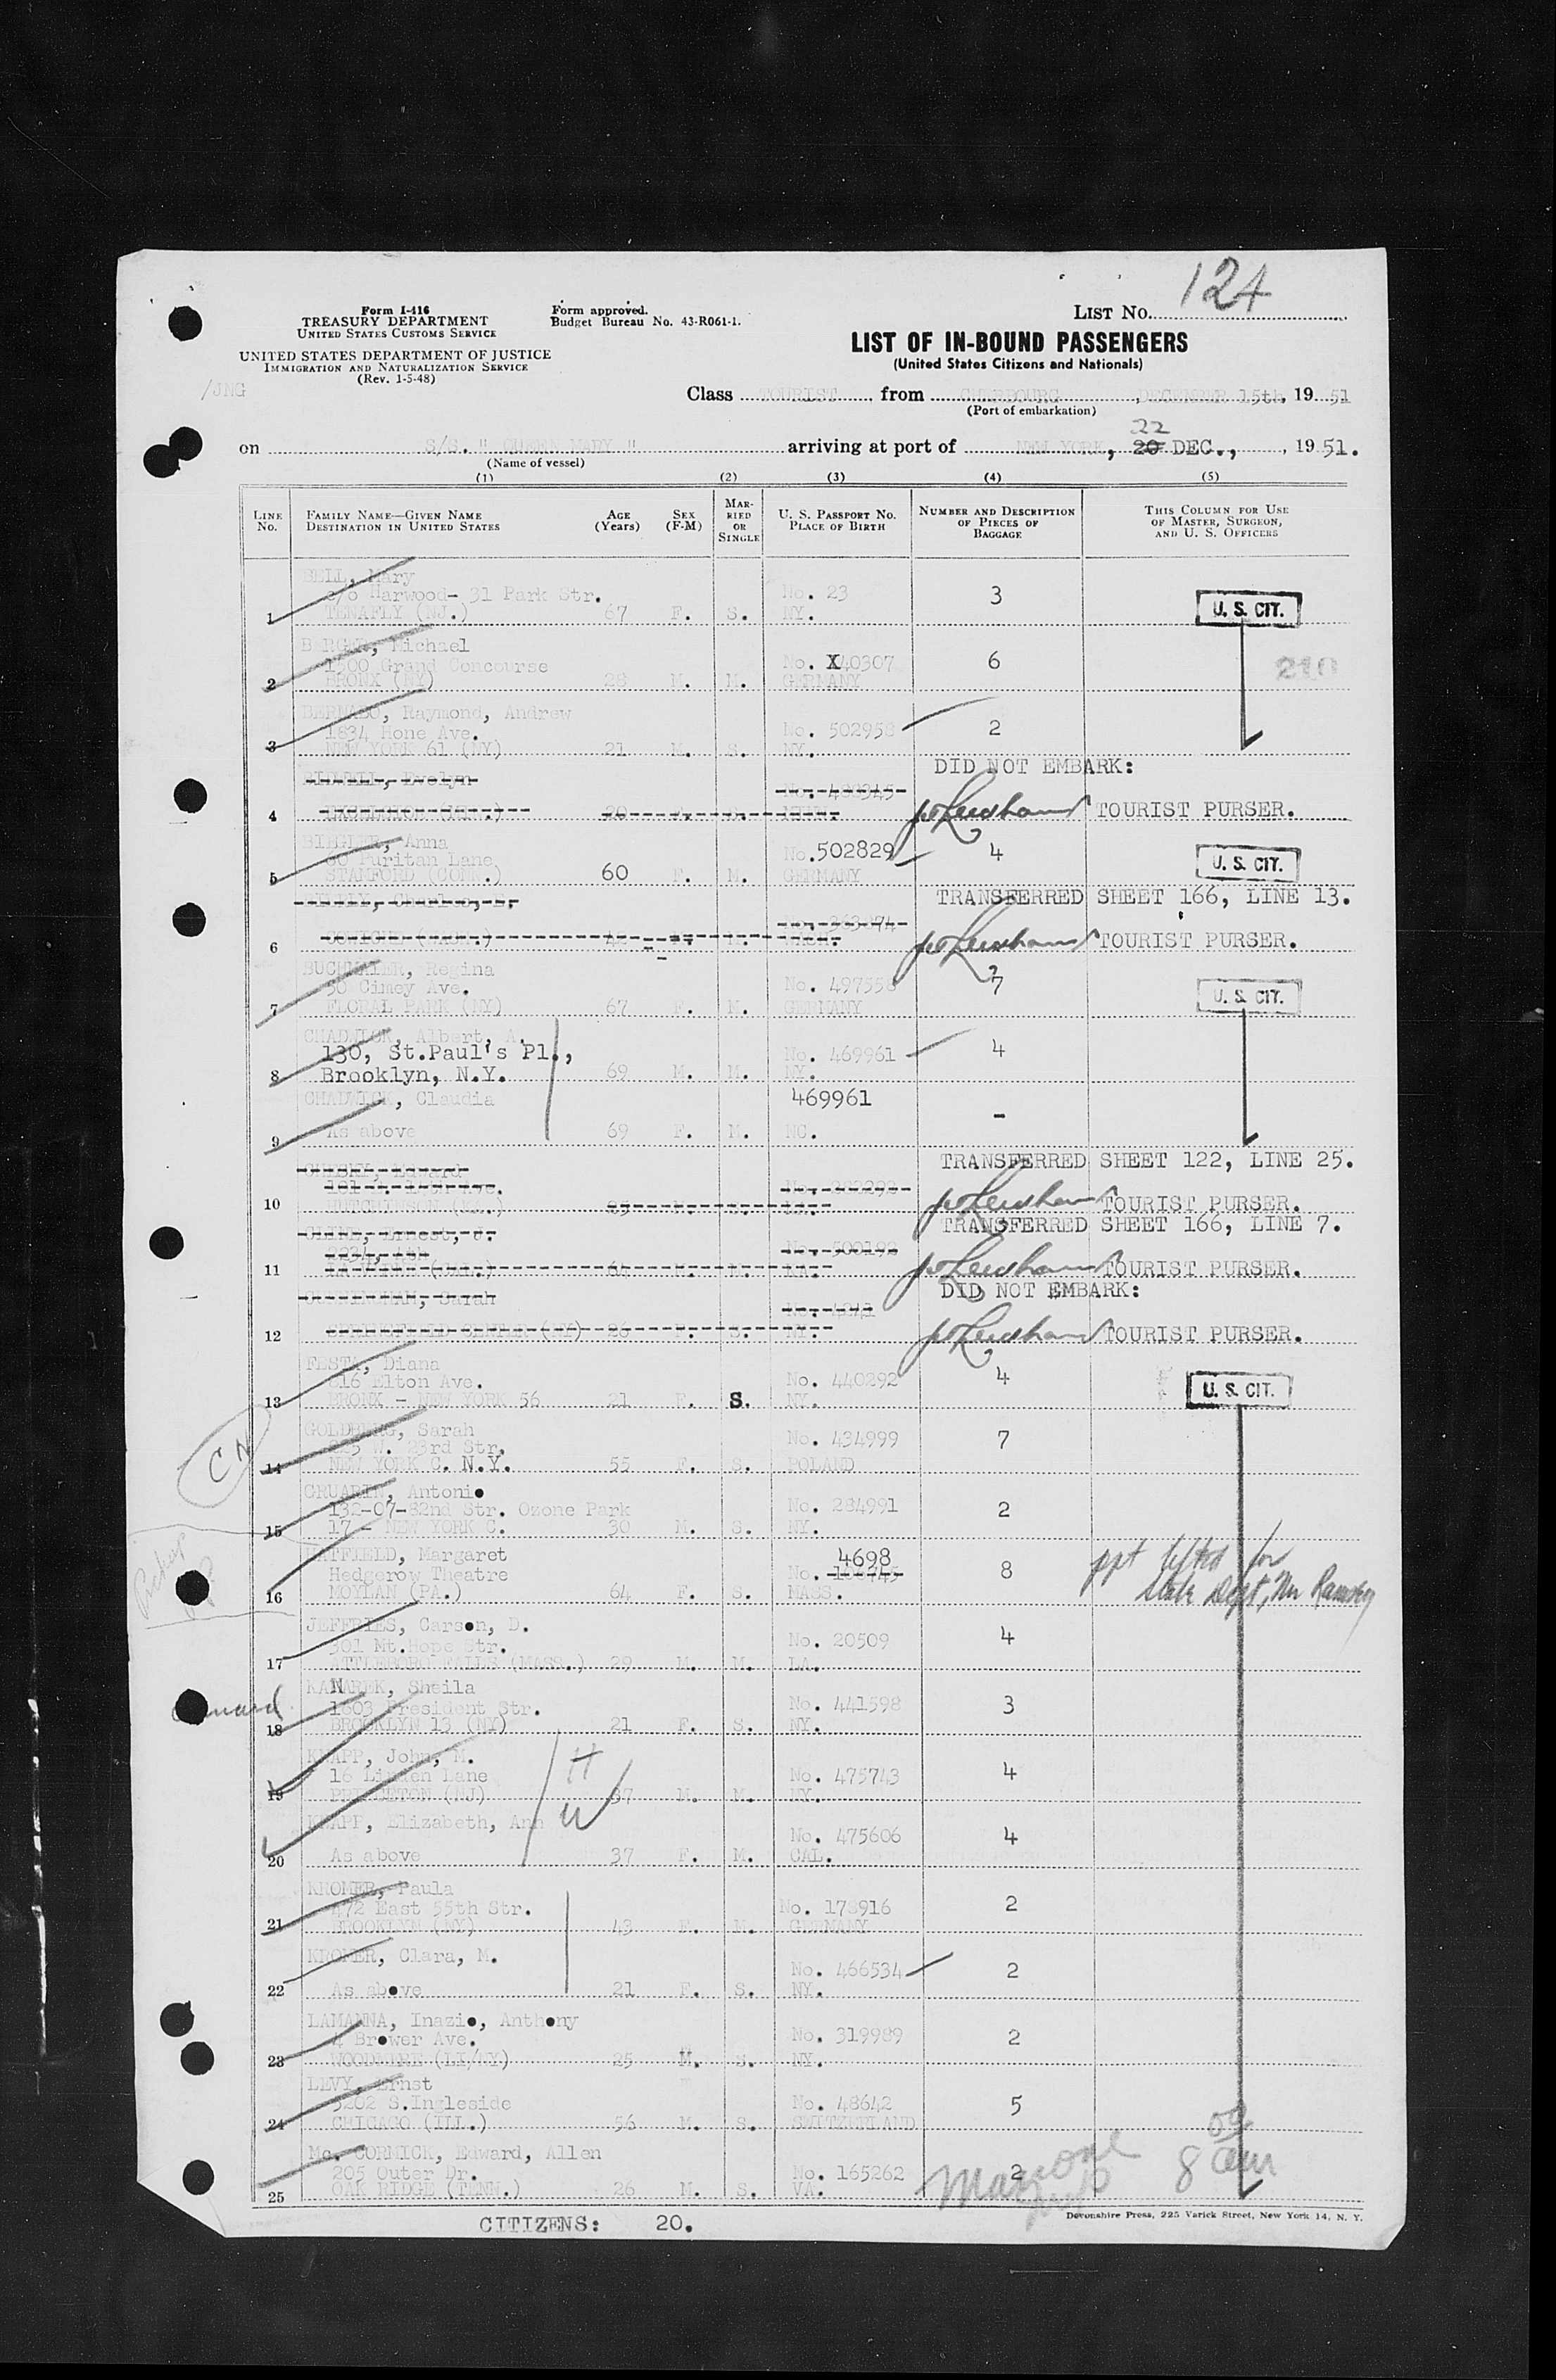 124
Form I-416
TREASURY DEPARTMENT
UNITED STATES CUSTOMS SERVICE
UNITED STATES DEPARTMENT OF JUSTICE
IMMIGRATION AND NATURALIZATION SERVICE
(Rev. 1-5-48)
/JNG
Form approved.
Budget Bureau No. 43-R061-1.
LIST No.
LIST OF IN-BOUND PASSENGERS
(United States Citizens and Nationals)
Class TOURIST from CHERBOURG, DECEMBER 15th, 19 51
(Port of embarkation)
22
on S/S. " QUEEN MARY " arriving at port of NEW YORK, 20 DEC., 19 51.
(Name of vessel)
(1) (2) (3) (4) (5)
LINE No. FAMILY NAME—GIVEN NAME DESTINATION IN UNITED STATES AGE (Years) SEX (F-M) MARRIED OR SINGLE U. S. PASSPORT No. PLACE OF BIRTH NUMBER AND DESCRIPTION OF PIECES OF BAGGAGE THIS COLUMN FOR USE OF MASTER, SURGEON, AND U. S. OFFICERS
BELL, Mary
c/o Harwood- 31 Park Str. No. 23 3 U. S. CIT.
1 TENAFLY (NJ.) 67 F. S. NY.
BERGER, Michael
1500 Grand Concourse No. X40307 6 210
2 BRONX (NY) 28 M. M. GERMANY
BERNABO, Raymond, Andrew
1834 Hone Ave. No. 502958 2
3 NEW YORK 61 (NY) 21 M. S. NY.
DID NOT EMBARK:
Evelyn
4 TOURIST PURSER.
BIEGLER, Anna
60 Puritan Lane No. 502829 4 U. S. CIT.
5 STANFORD (CONN.) 60 F. M. GERMANY
Charles, E. TRANSFERRED SHEET 166, LINE 13.
6 TOURIST PURSER.
BUCHMAIER, Regina
50 Cimey Ave. No. 497558 7 U. S. CIT.
7 FLORAL PARK (NY) 67 F. M. GERMANY
CHADWICK, Albert, A.
130, St.Paul's Pl., No. 469961 4
8 Brooklyn, N.Y. 69 M. M. NY.
CHADWICK, Claudia 469961 -
9 As above 69 F. M. NC.
TRANSFERRED SHEET 122, LINE 25.
10 TOURIST PURSER.
CLINE, Ernest, J. TRANSFERRED SHEET 166, LINE 7.
No. 500192
11 TOURIST PURSER.
CUNNINGHAM, Sarah DID NOT EMBARK:
12 SPRINGFIELD CENTER (NY) 26 F. S. NY. TOURIST PURSER.
FESTA, Diana
816 Elton Ave. No. 440292 4 U. S. CIT.
13 BRONX - NEW YORK 56 21 F. S. NY.
GOLDBERG, Sarah
225 W. 23rd Str. No. 434999 7
14 NEW YORK C. N.Y. 55 F. S. POLAND
GRUARIN, Antonio
132-07-82nd Str. Ozone Park No. 284991 2
15 17 - NEW YORK C. 30 M. S. NY.
HATFIELD, Margaret 4698
Hedgerow Theatre No. 8 ppt lifted for
16 MOYLAN (PA.) 64 F. S. MASS. State Dept, Mr Ramsey
JEFFRIES, Carson, D.
301 Mt.Hope Str. No. 20509 4
17 ATTLEBORO FALLS (MASS.) 29 M. M. LA.
KANAREK, Sheila
1603 President Str. No. 441598 3
18 BROOKLYN 13 (NY) 21 F. S. NY.
KNAPP, John, M. H
16 Linden Lane No. 475743 4
19 PRINCETON (NJ) 37 M. M. NY.
KNAPP, Elizabeth, Ann W
No. 475606 4
20 As above 37 F. M. CAL.
KROMER, Paula
472 East 55th Str. No. 178916 2
21 BROOKLYN (NY) 43 F. M. GERMANY
KROMER, Clara, M.
No. 466534 2
22 As above 21 F. S. NY.
LAMANNA, Inazio, Anthony
4 Brower Ave. No. 319989 2
23 WOODMERE (LI/NY) 25 M. S. NY.
LEVY, Ernst
5202 S.Ingleside No. 48642 5
24 CHICAGO (ILL.) 56 M. S. SWITZERLAND
Mc. CORMICK, Edward, Allen
205 Outer Dr. No. 165262 2 8 am
25 OAK RIDGE (TENN.) 26 M. S. VA.
Devonshire Press, 225 Varick Street, New York 14, N. Y.
CITIZENS: 20.